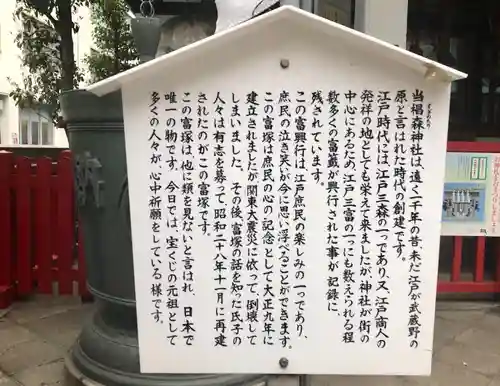 当椙森神社は遠く一千年の昔、未だ江戸が武蔵野の
すぎのもり
原と言はれた時代の創建です。
江戸時代には、江戸三森の一つであり、又、江戸商人の
発祥の地としても栄えて来ましたが、神社が街の
中心にあるため、江戸三富の一つにも数えられる程
数多くの富籤が興行された事が記録に、
残されています。
この富興行は、江戸庶民の楽しみの一つであり、
庶民の泣き笑いが今に思い浮べることができます。
この富塚は庶民の心の記念として大正九年に
建立されましたが関東大震災に依って、倒壊して
しまいました。その後、富塚の話を知った氏子の
人々は有志を募って、昭和二十八年十一月に再建
されたのがこの富塚です。
この富塚は、他に類を見ないと言はれ、日本で
唯一の物です。今日では、宝くじの元祖として
多くの人々が、心中祈願をしている様です。